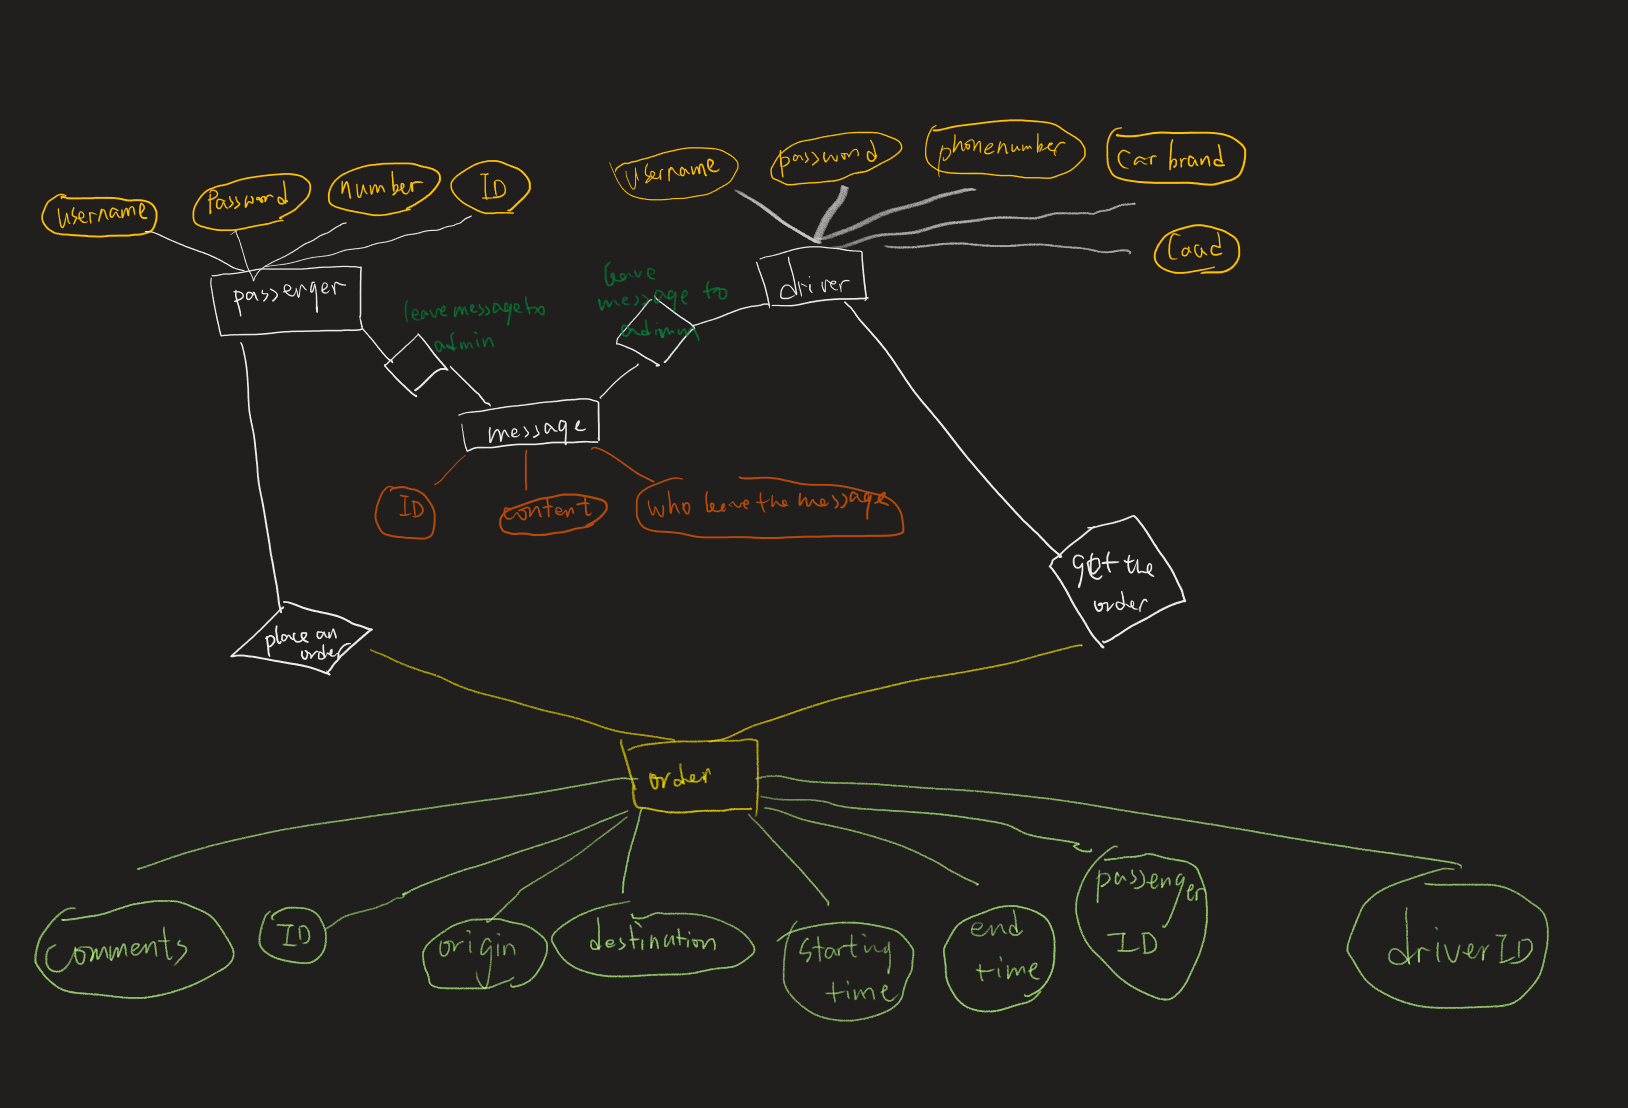 username
Password
number
ID
username
password
phonenumber
car brand
passenger
driver
leave message to
admin
leave
message to
message
ID
content
who leave the message
get the
order
place an
order
order
comments
ID
origin
destination
starting
time
end
time
passenger
ID
driverID